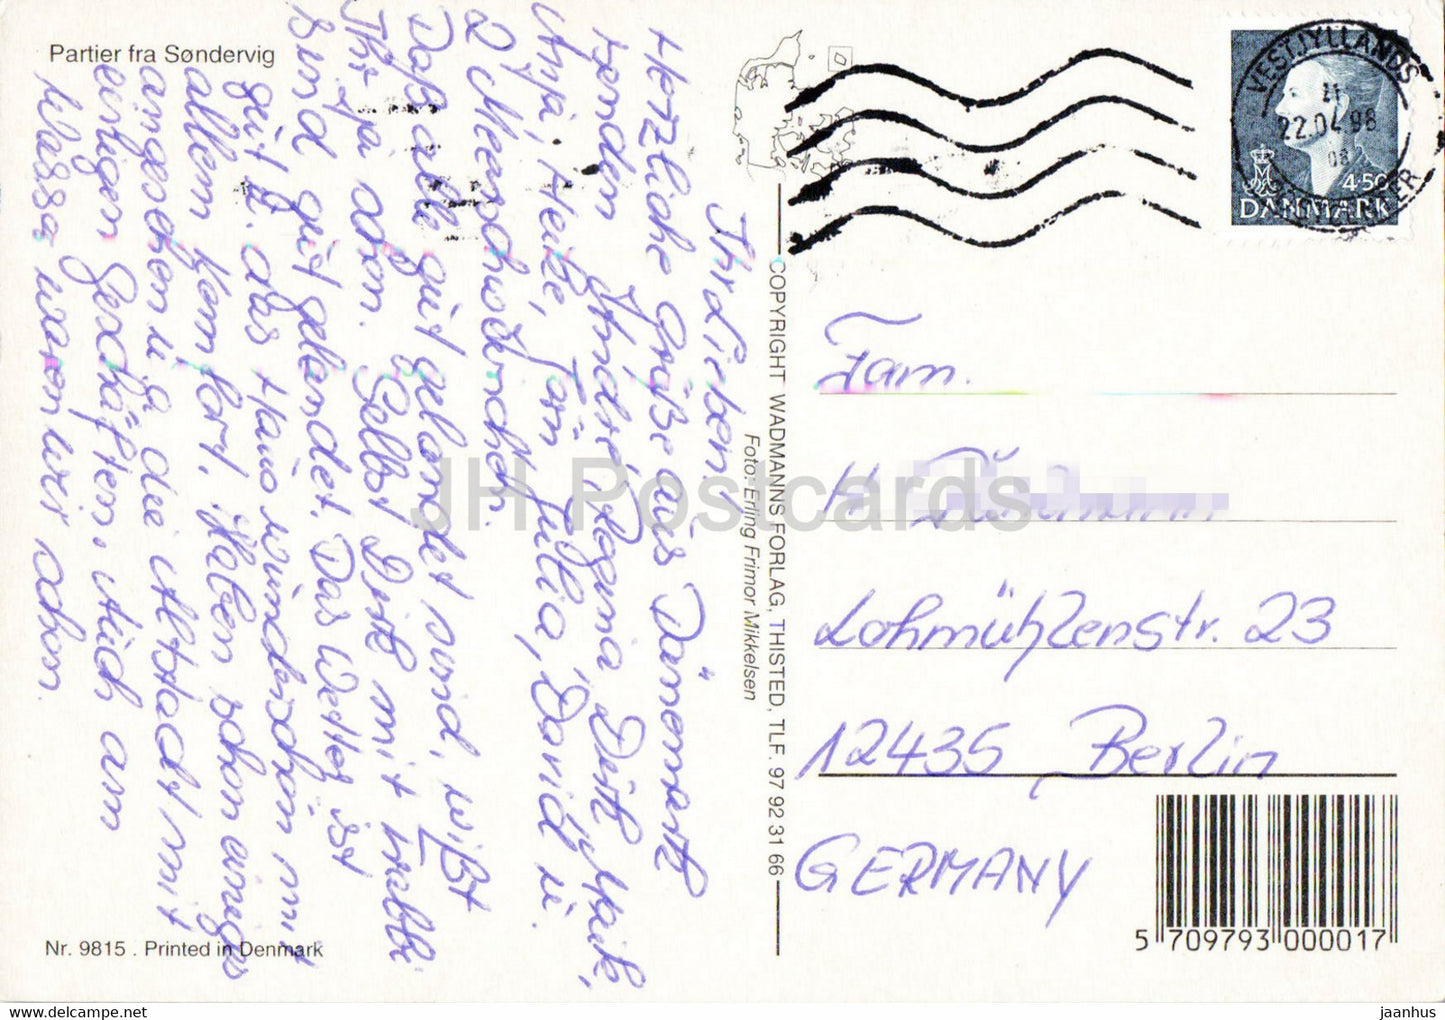 Partier fra Søndervig
Ihr Lieben!
Herzliche Grüße aus Dänemark
senden André, Regina, Dirk, Maik,
Anja, Heike, Tom, Julia, David u.
2 Meerschweinchen.
Daß alle gut gelandet sind, wißt
Ihr ja schon. Selbst Dirk mit
sind gut gelandet. Das Wetter ist
gut u. das Haus wunderschön mit
allem Komfort. Haben schon einiges
angesehen u. a. die Altstadt mit
einigen Geschäften. Auch am
Wasser waren wir schon.
COPYRIGHT WADMANNS FORLAG, THISTED, TLF. 97 92 31 66
Foto: Erling Frimor Mikkelsen
VESTJYLLANDS
22.04.98
08
POSTCENTER
4.50
DANMARK
Fam.
H.
Lohmühlenstr. 23
12435 Berlin
GERMANY
5 709793 000017
Nr. 9815 . Printed in Denmark
JH Postcards
www.delcampe.net
jaanhus